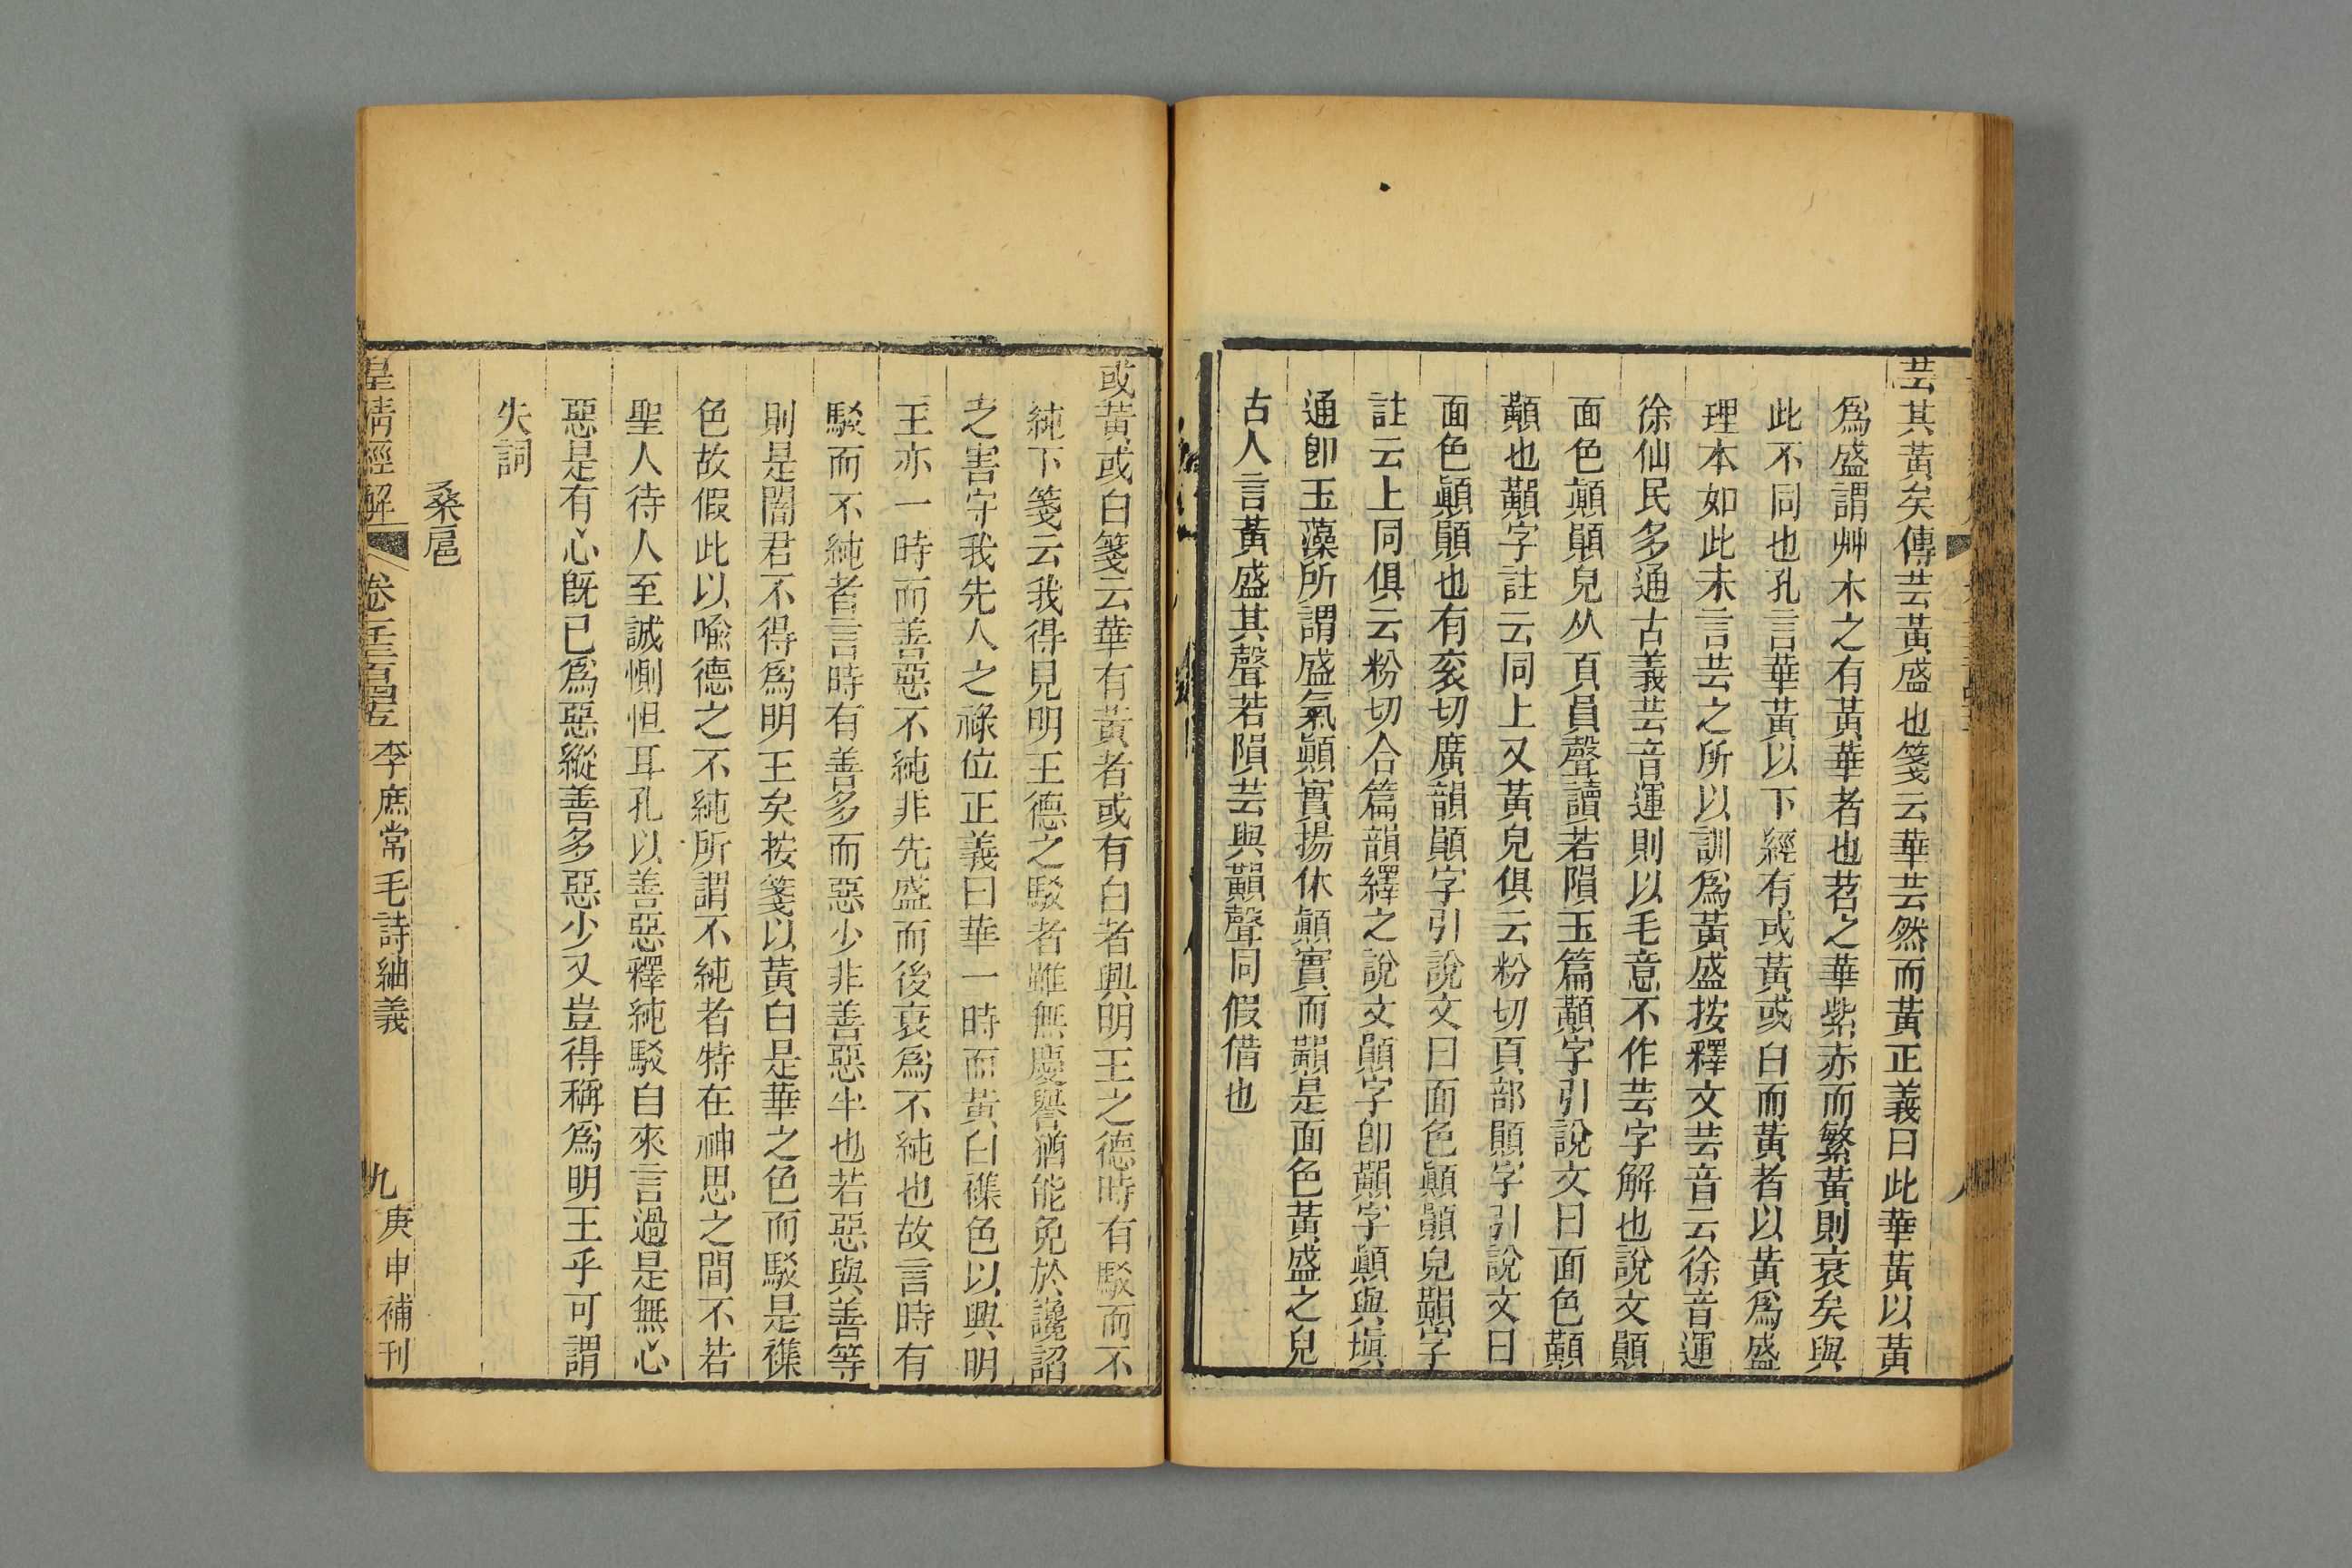 芸其黃矣傳芸黃盛也箋云華芸然而黃正義曰此華黃以黃
爲盛謂艸木之有黃華者也苕之華紫赤而繁黃則衰矣與
此不同也孔言華黃以下經有或黃或白而黃者以黃爲盛
理本如此未言芸之所以訓爲黃盛按釋文芸音云徐音運
徐仙民多通古義芸音運則以毛意不作芸字解也說文顚
面色顚顚皃从頁員聲讀若隕玉篇顚字引說文曰面色顚
顚也䫟字註云同上又黃皃俱云粉切頁部顚字引說文曰
面色顚顚也有衮切廣韻顚字引說文曰面色顚顚皃䫟字
註云上同俱云粉切合篇韻繹之說文顚字卽䫟字顚與塡
通卽玉藻所謂盛氣顚實揚休顚實而䫟是面色黃盛之皃
古人言黃盛其聲若隕芸與䫟聲同假借也
或黃或白箋云華有黃者或有白者興明王之德時有駁而不
純下箋云我得見明王德之駁者雖無慶譽猶能免於讒諂
之害守我先人之祿位正義曰華一時而黃白襍色以興明
王亦一時而善惡不純非先盛而後衰爲不純也故言時有
駁而不純者言時有善多而惡少非善惡半也若惡與善等
則是闇君不得爲明王矣按箋以黃白是華之色而駁是襍
色故假此以喻德之不純所謂不純者特在神思之間不若
聖人待人至誠惻怛耳孔以善惡釋純駁自來言過是無心
惡是有心旣已爲惡縱善多惡少又豈得稱爲明王乎可謂
失詞
桑扈
皇清經解 卷一千三百四十五 李庶常毛詩紬義 九 庚申補刊